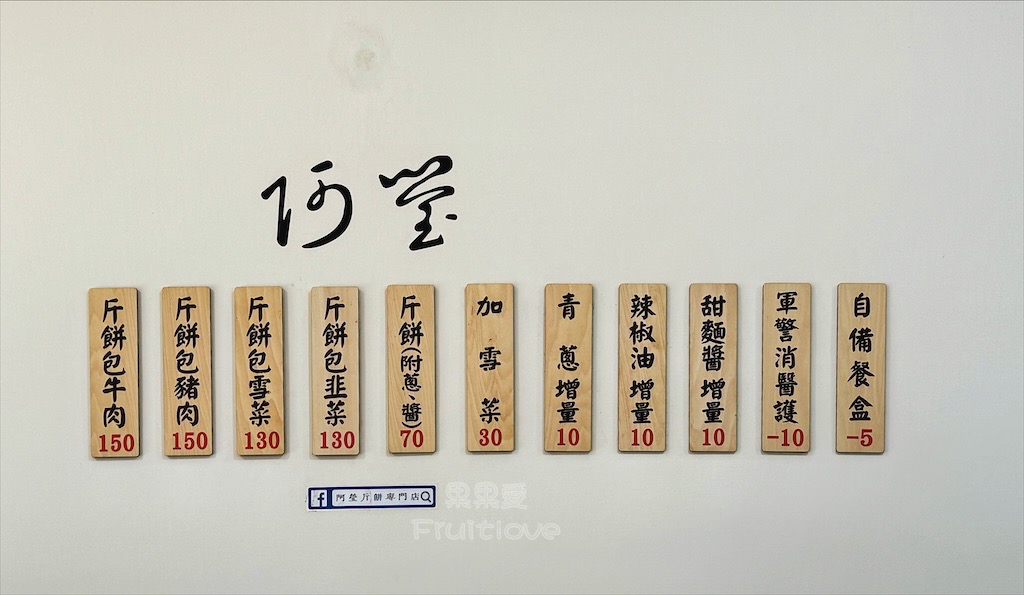 阿瑩
斤餅包牛肉 150
斤餅包豬肉 150
斤餅包雪菜 130
斤餅包韭菜 130
斤餅(附蔥、醬) 70
加雪菜 30
青蔥增量 10
辣椒油增量 10
甜麵醬增量 10
軍警消醫護 -10
自備餐盒 -5
f 阿瑩斤餅專門店
果果愛
Fruitlove